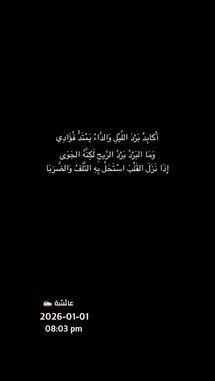 أُكَابِدُ بَرْدَ اللَّيْلِ وَالدَّاءُ يَمْتَدُّ فُؤَادِي
وَمَا البَرْدُ بَرْدُ الرِّيحِ لَكِنَّهُ الجَوَى
إِذَا نَزَلَ القَلْبَ اسْتَحَلَّ بِهِ التَّلَفُ وَالضَّرَبَا
عائشة ✍🏻
2026-01-01
08:03 pm